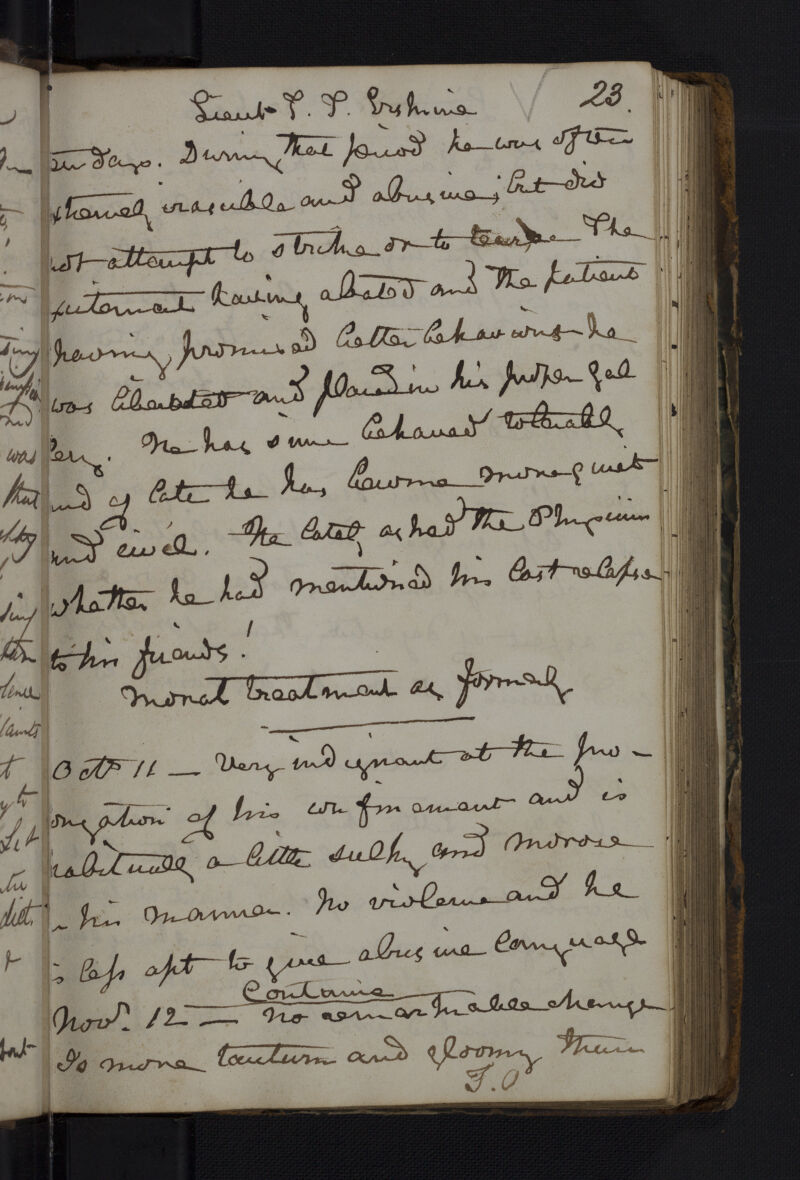 Lieut T. T. Erskine 23.
days. During that period he was often
irascible and abusive; but did
not attempt to strike or to The
having abated and the patient
having promised better behaviour he
was liberated and placed in his proper gal
lery. He has since behaved tolerably
and of late he has become more quiet
and civil. He lately asked the Physician
whether he had mentioned his last relapse
to his friends!
Moral treatment as formerly
Octr 11 — Very indignant at the pro-
longation of his confinement and is
habitually a little sulky and morose
in his manner. No violence and he
is less apt to give abusive language
Contcine
Novr. 12 — No remarkable change
Is more taciturn and gloomy than
T.O